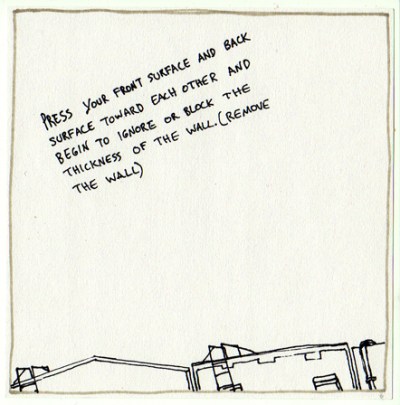 PRESS YOUR FRONT SURFACE AND BACK
SURFACE TOWARD EACH OTHER AND
BEGIN TO IGNORE OR BLOCK THE
THICKNESS OF THE WALL. (REMOVE
THE WALL)